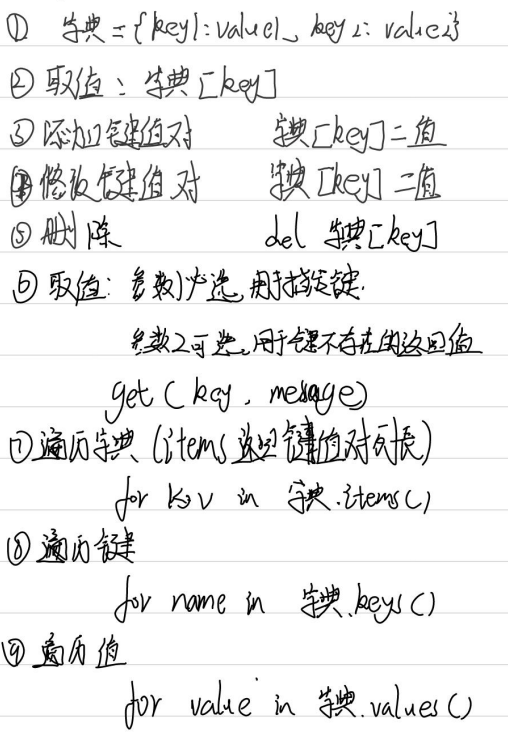 ① 字典={key1:value1、key2:value2}
② 取值：字典[key]
③ 添加键值对 字典[key]=值
④ 修改键值对 字典[key]=值
⑤ 删除 del 字典[key]
⑥ 取值：参数1必选,用于指定键.
参数2可选,用于键不存在的返回值
get(key,message)
⑦ 遍历字典(items返回键值对列表)
for k,v in 字典.items()
⑧ 遍历键
for name in 字典.keys()
⑨ 遍历值
for value in 字典.values()